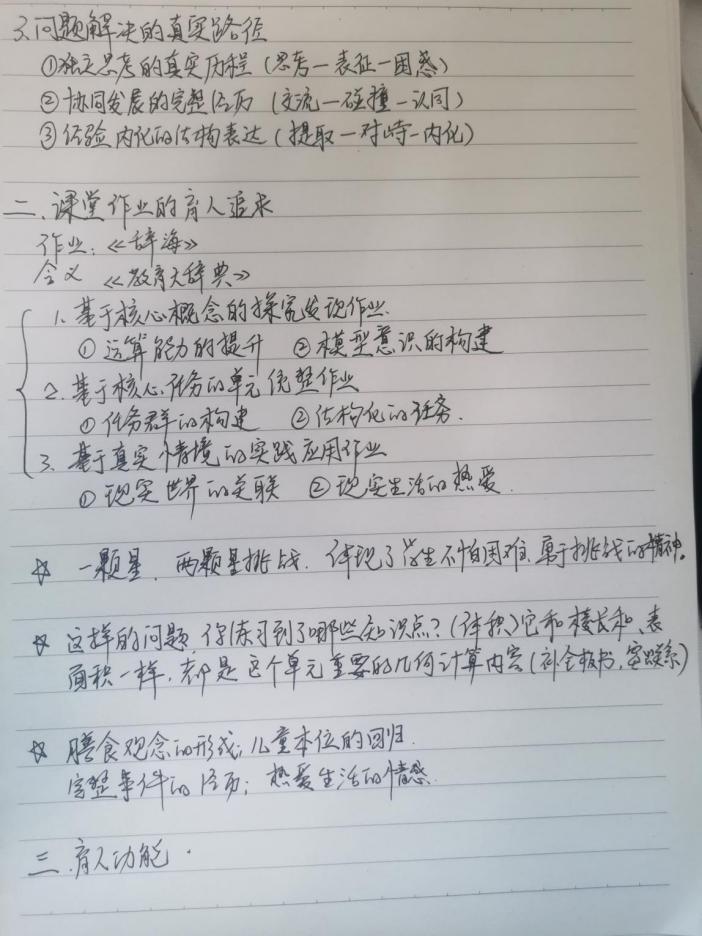 3.问题解决的真实路径
①独立思考的真实历程(思考—表征—困惑)
②协同发展的完整经历(交流—碰撞—认同)
③经验内化的结构表达(提取—对峙—内化)
二、课堂作业的育人追求
作业:《辞海》
含义《教育大辞典》
1.基于核心概念的探究发现作业.
①运算能力的提升 ②模型意识的构建
2.基于核心任务的单元统整作业
①任务群的构建 ②结构化的任务.
3.基于真实情境的实践应用作业
①现实世界的关联 ②现实生活的热爱.
☆ 一颗星、两颗星挑战.体现了学生不怕困难、勇于挑战的精神。
☆ 这样的问题,你练习到了哪些知识点?(体积)它和棱长和、表
面积一样,都是这个单元重要的几何计算内容(补全板书,
☆ 膳食观念的形成;儿童本位的回归.
完整事件的经历;热爱生活的情感.
三.育人功能.